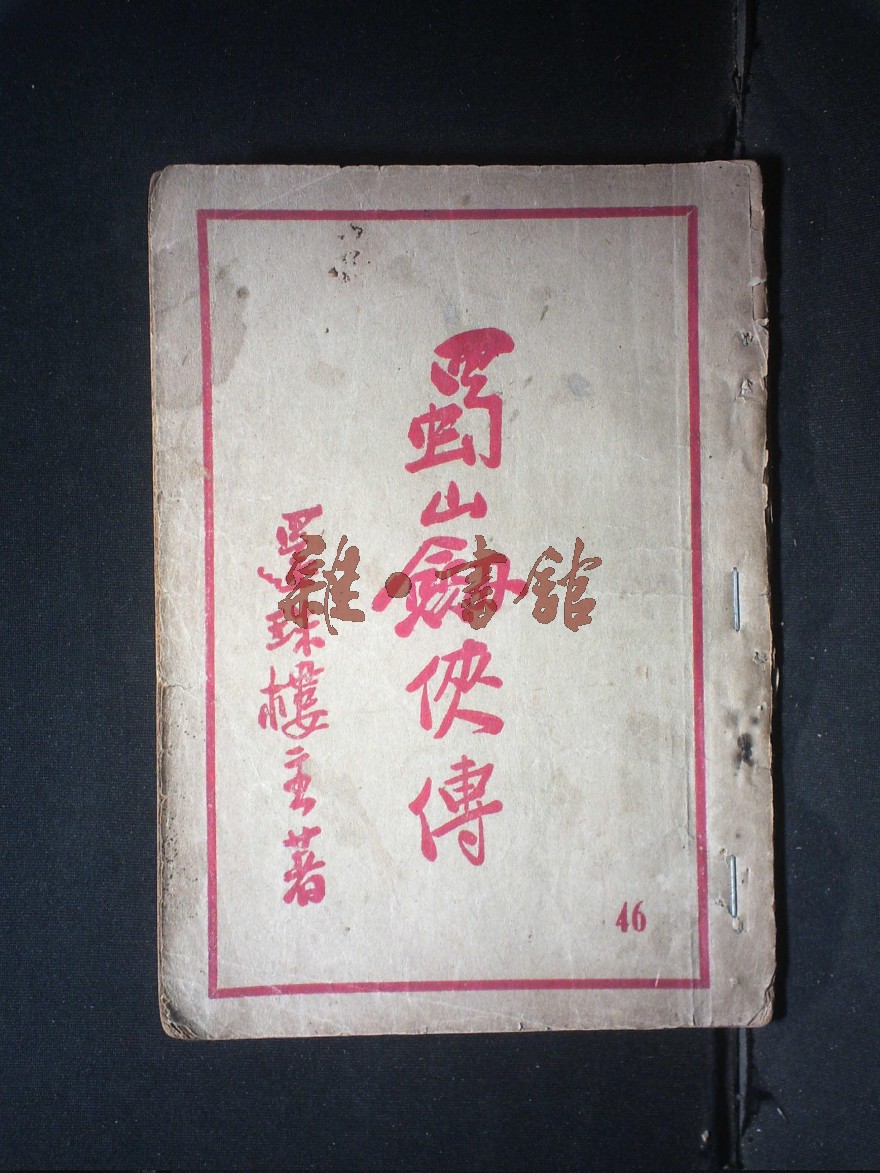 蜀山劍俠傳
還珠樓主著
46
雜·書館